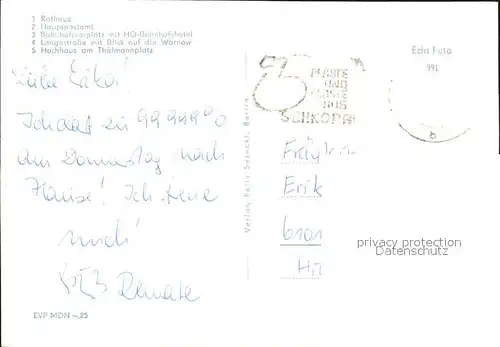 1 Rathaus
2 Hauptpostamt
3 Bahnhofsvorplatz mit HO-Bahnhofshotel
4 Langestraße mit Blick auf die Warnow
5 Hochhaus am Thälmannplatz
Liebe Erika!
Ich darf zu 99,999%
am Donnerstag nach
Hause! Ich freue
mich!
Renate
EVP MDN –,25
Verlag Felix Setecki, Berlin
PLASTE
UND
AUS
SCHKOPAU
Echt Foto
991
Erik
privacy protection
Datenschutz